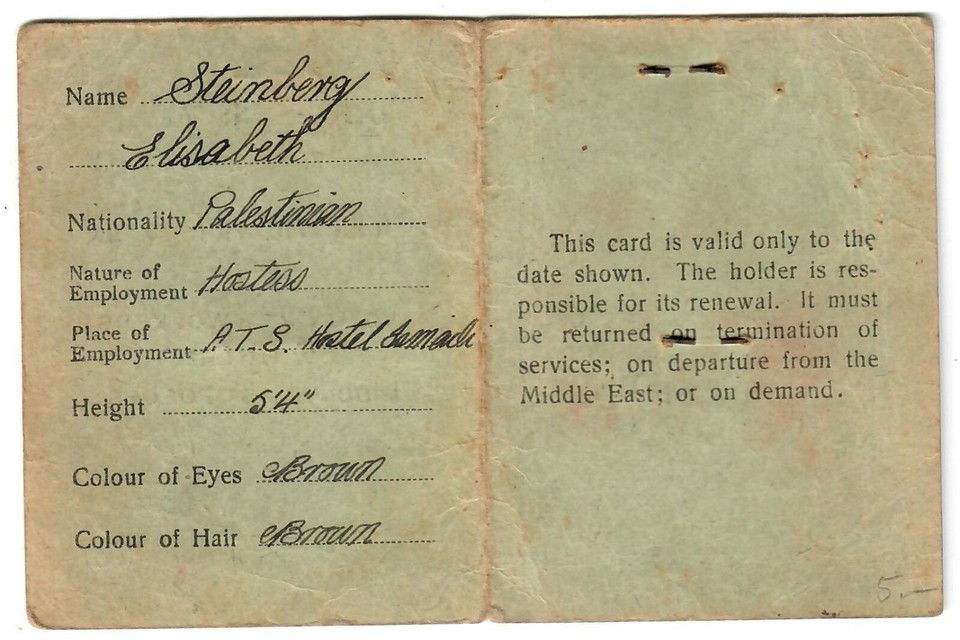 Name Steinberg
Elisabeth
Nationality Palestinian
Nature of
Employment Hostess
Place of
Employment A.T.S. Hostel
Height 5'4"
Colour of Eyes Brown
Colour of Hair Brown
This card is valid only to the
date shown. The holder is res-
ponsible for its renewal. It must
be returned on termination of
services; on departure from the
Middle East; or on demand.
5.—